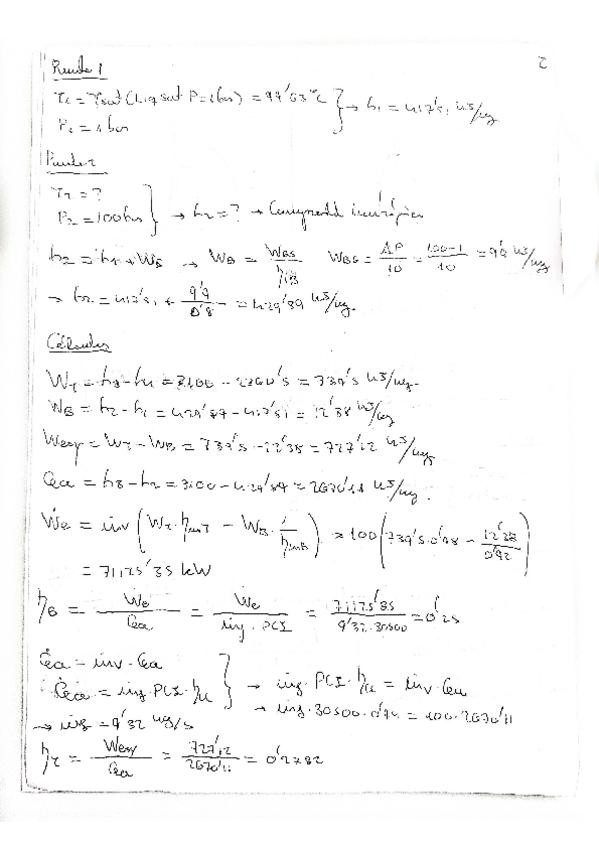 2
Punto 1
T1 = Tsat (Liq sat P=1bar) = 99'63 ºC } → h1 = 417'51 kJ/kg
P1 = 1 bar
Punto 2
T2 = ?
P2 = 100bar } → h2 = ? → Compresión
h2 = h1 + WB → WB = WBS/ηiB WBS = ΔP/10 = 100-1/10 = 9'9 kJ/kg
→ h2 = 417'51 + 9'9/0'8 = 429'89 kJ/kg.
Cálculos
WT = h3 - h4 = 3100 - 2360'5 = 739'5 kJ/kg.
WB = h2 - h1 = 429'89 - 417'51 = 12'38 kJ/kg
Weq = WT - WB = 739'5 - 12'38 = 727'12 kJ/kg
Qca = h3 - h2 = 3100 - 429'89 = 2670'11 kJ/kg.
Ẇe = ṁv (WT·ηmT - WB·1/ηmB) = 100 (739'5·0'98 - 12'38/0'92)
= 71125'35 kW
= Ẇe/Q̇ca = Ẇe/ṁg·PCI = 71125'35/9'32·30500 = 0'25
Q̇ca = ṁv·Qca
Q̇ca = ṁg·PCI·η } → ṁg·PCI·η = ṁv·Qca
→ ṁg·30500·0'94 = 100·2670'11
→ ṁg = 9'32 kg/s
= 727'12/2670'11 = 0'2782